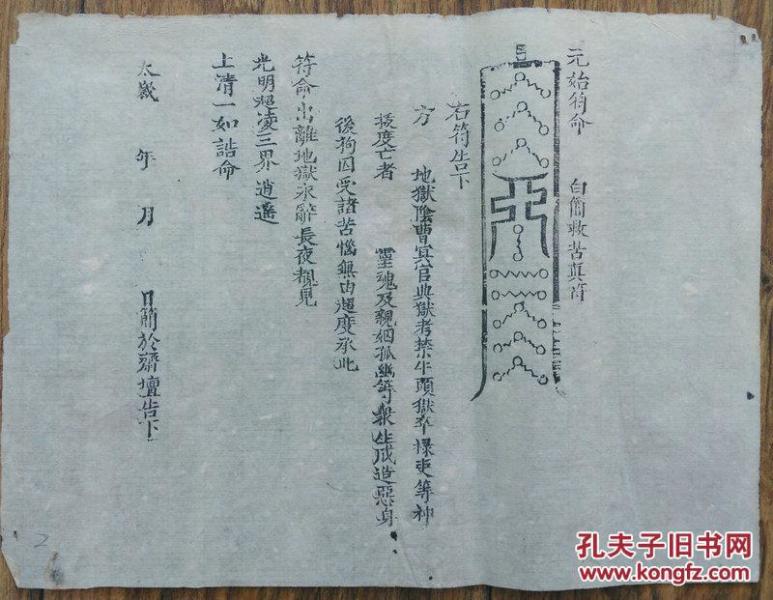 元始符命 白簡救苦真符
右符告下
方 地獄陰曹冥官典獄考禁牛頭獄卒掾吏等神
拔度亡者 靈魂及親姻孤幽等衆生成造惡身
後拘囚受諸苦惱無由超度承此
符命出離地獄永辭長夜覩見
光明超凌三界逍遥
上清一如誥命
太歲 年 月 日簡於齋壇告下
2
孔夫子旧书网
www.kongfz.com